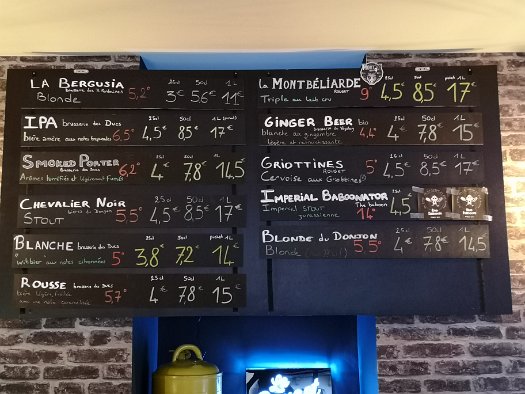 LA BERGUSIA 5,2° 25cl 3€ 50cl 5,6€ 1L 11€
Blonde
IPA brasserie des Ducs 6.5° 25cl 4,5€ 50cl 8,5€ 1L 17€
bière amère aux notes
SMOKED PORTER brasserie des Ducs 6,2° 4€ 7,8€ 14,5€
Arômes torréfiés et légèrement fumés
CHEVALIER NOIR 5.5° 25cl 4,5€ 50cl 8,5€ 1L 17€
STOUT
BLANCHE brasserie des Ducs 5° 25cl 3,8€ 50cl 7,2€ 1L 14€
witbier aux notes citronnées
ROUSSE brasserie des Ducs 5.7° 25cl 4€ 50cl 7,8€ 1L 15€
bière légère,
LA MONTBÉLIARDE ROUGET 9° 25cl 4,5€ 50cl 8,5€ 1L 17€
Triple au lait cru
GINGER BEER bio 4,4° 25cl 4€ 50cl 7,8€ 1L 15€
blanche au gingembre
légère et rafraîchissante
GRIOTTINES ROUGET 5° 25cl 4,5€ 50cl 8,5€ 17€
Cervoise aux Griottines
IMPERIAL BABOONATOR The baboon 14° 25cl 4,5€
Impérial stout
jurassienne
BLONDE DU DONJON 5.5° 25cl 4€ 50cl 7,8€ 1L 14,5€
Blonde